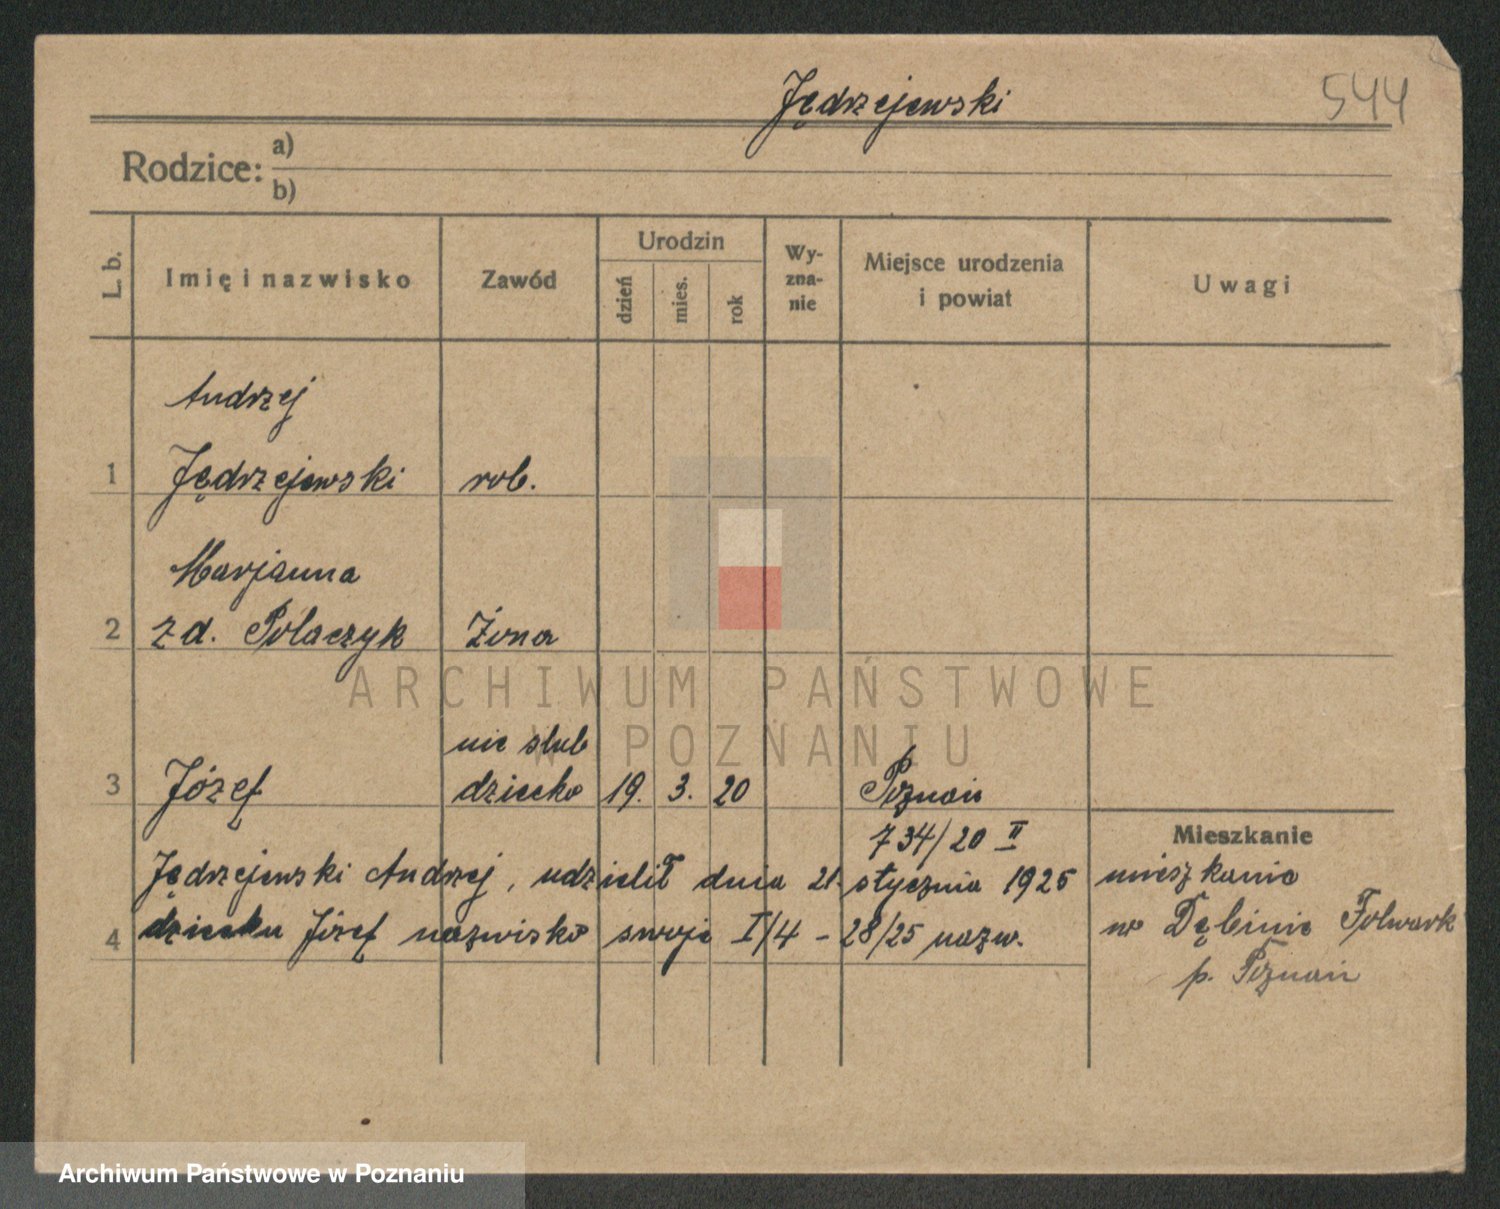 Jędrzejewski
544
Rodzice: a)
b)
L. b.
Imię i nazwisko
Zawód
Urodzin
dzień
mies.
rok
Wy-
zna-
nie
Miejsce urodzenia
i powiat
Uwagi
Andrzej
1 Jędrzejewski rob.
Marjanna
2 z d. Polaczyk Żona
nie ślub
3 Józef dziecko 19. 3. 20 Poznań
734/20 II
Jędrzejewski Andrzej, udzielił dnia 21. stycznia 1925
4 dziecku Józef nazwisko swoje I/4 - 28/25 nazw.
Mieszkanie
mieszkanie
w Dębinie Folwark
p. Poznań
ARCHIWUM PAŃSTWOWE
W POZNANIU
Archiwum Państwowe w Poznaniu